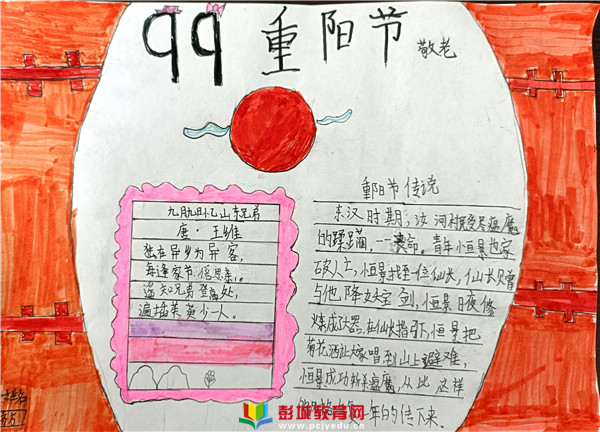 99重阳节
敬老
九月九日忆山东兄弟
唐·王维
独在异乡为异客,
每逢家节倍思亲。
遥知兄弟登高处,
遍插茱萸少一人。
重阳节传说
东汉时期,汝河
的蹂躏,一丧命。青年恒景也家
破人亡,恒景找到一位仙长,仙长
与他,降妖宝剑,恒景日夜修
炼成大器,在仙长指引下,恒景把
菊花酒让大家喝到山上避难,
恒景成功斩杀瘟魔,从此这样
一年的传下来。
彭城教育网
www.pcjyedu.cn